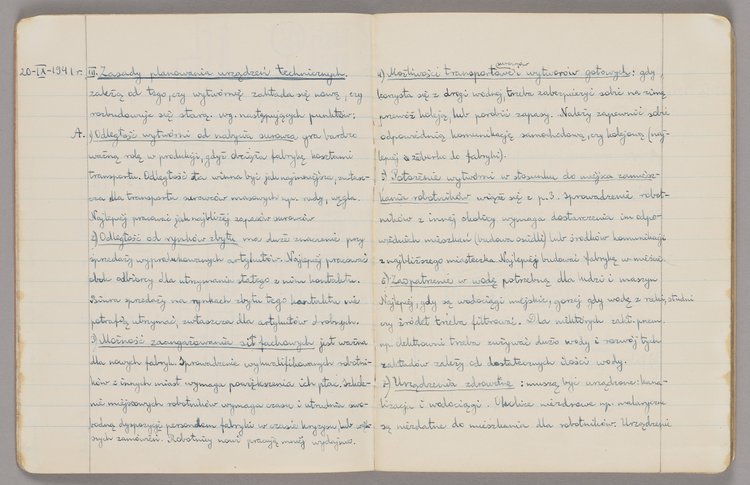 20-IX-1941 r. III. Zasady planowania urządzeń technicznych.
zależą od tego, czy wytwórnię zakłada się nową, czy
rozbudowuje się starą. wg. następujących punktów:
A. 1) Odległość wytwórni od nabycia surowca gra bardzo
ważną rolę w produkcji, gdyż obciąża fabrykę kosztami
transportu. Odległość ta winna być jak najmniejsza, zwłasz-
cza dla transportu surowców masowych np. rudy, węgla.
Najlepiej pracować jak najbliżej zapasów surowców
2) Odległość od rynków zbytu ma duże znaczenie przy
sprzedaży wyprodukowanych artykułów. Najlepiej pracować
obok odbiorcy dla utrzymania stałego z nim kontaktu.
Biura sprzedaży na rynkach zbytu tego kontaktu nie
potrafią utrzymać, zwłaszcza dla artykułów drobnych.
3) Możność zaangażowania sił fachowych jest ważna
dla nowych fabryk. Sprowadzenie wykwalifikowanych robotni-
ków z innych miast wymaga powiększenia ich płac. Szkole-
nie miejscowych robotników wymaga czasu i utrudnia swo-
bodną dyspozycję personelem fabryki w czasie kryzysu lub więk-
szych zamówień. Robotnicy nowi pracują mniej wydajnie.
4) Możliwości transportowe surowca i wytworów gotowych: gdy
korzysta się z drogi wodnej, trzeba zabezpieczyć sobie na zimę
przewóz koleją, lub porobić zapasy. Należy zapewnić sobie
odpowiednią komunikację samochodową, czy kolejową (naj-
lepiej z do fabryki).
5) Położenie wytwórni w stosunku do miejsca zamiesz-
kania robotników wiąże się z p. 3. Sprowadzenie robot-
ników z innej okolicy wymaga dostarczenia im odpo-
wiednich mieszkań (budowa osiedli) lub środków komunikacji
z najbliższego miasteczka. Najlepiej budować fabrykę w mieście.
6) Zaopatrzenie w wodę potrzebną dla ludzi i maszyn.
Najlepiej, gdy są wodociągi miejskie, gorzej gdy wodę z rzeki, studni
czy źródeł trzeba filtrować. Dla niektórych zakł. przem.
np. elektrowni trzeba zużywać dużo wody i rozwój tych
zakładów zależy od dostatecznych ilości wody.
7) Urządzenia zdrowotne: muszą być urządzone: kana-
lizacja i wodociągi. Okolice niezdrowe np. malaryczne
są niezdatne do mieszkania dla robotników. Urządzenie